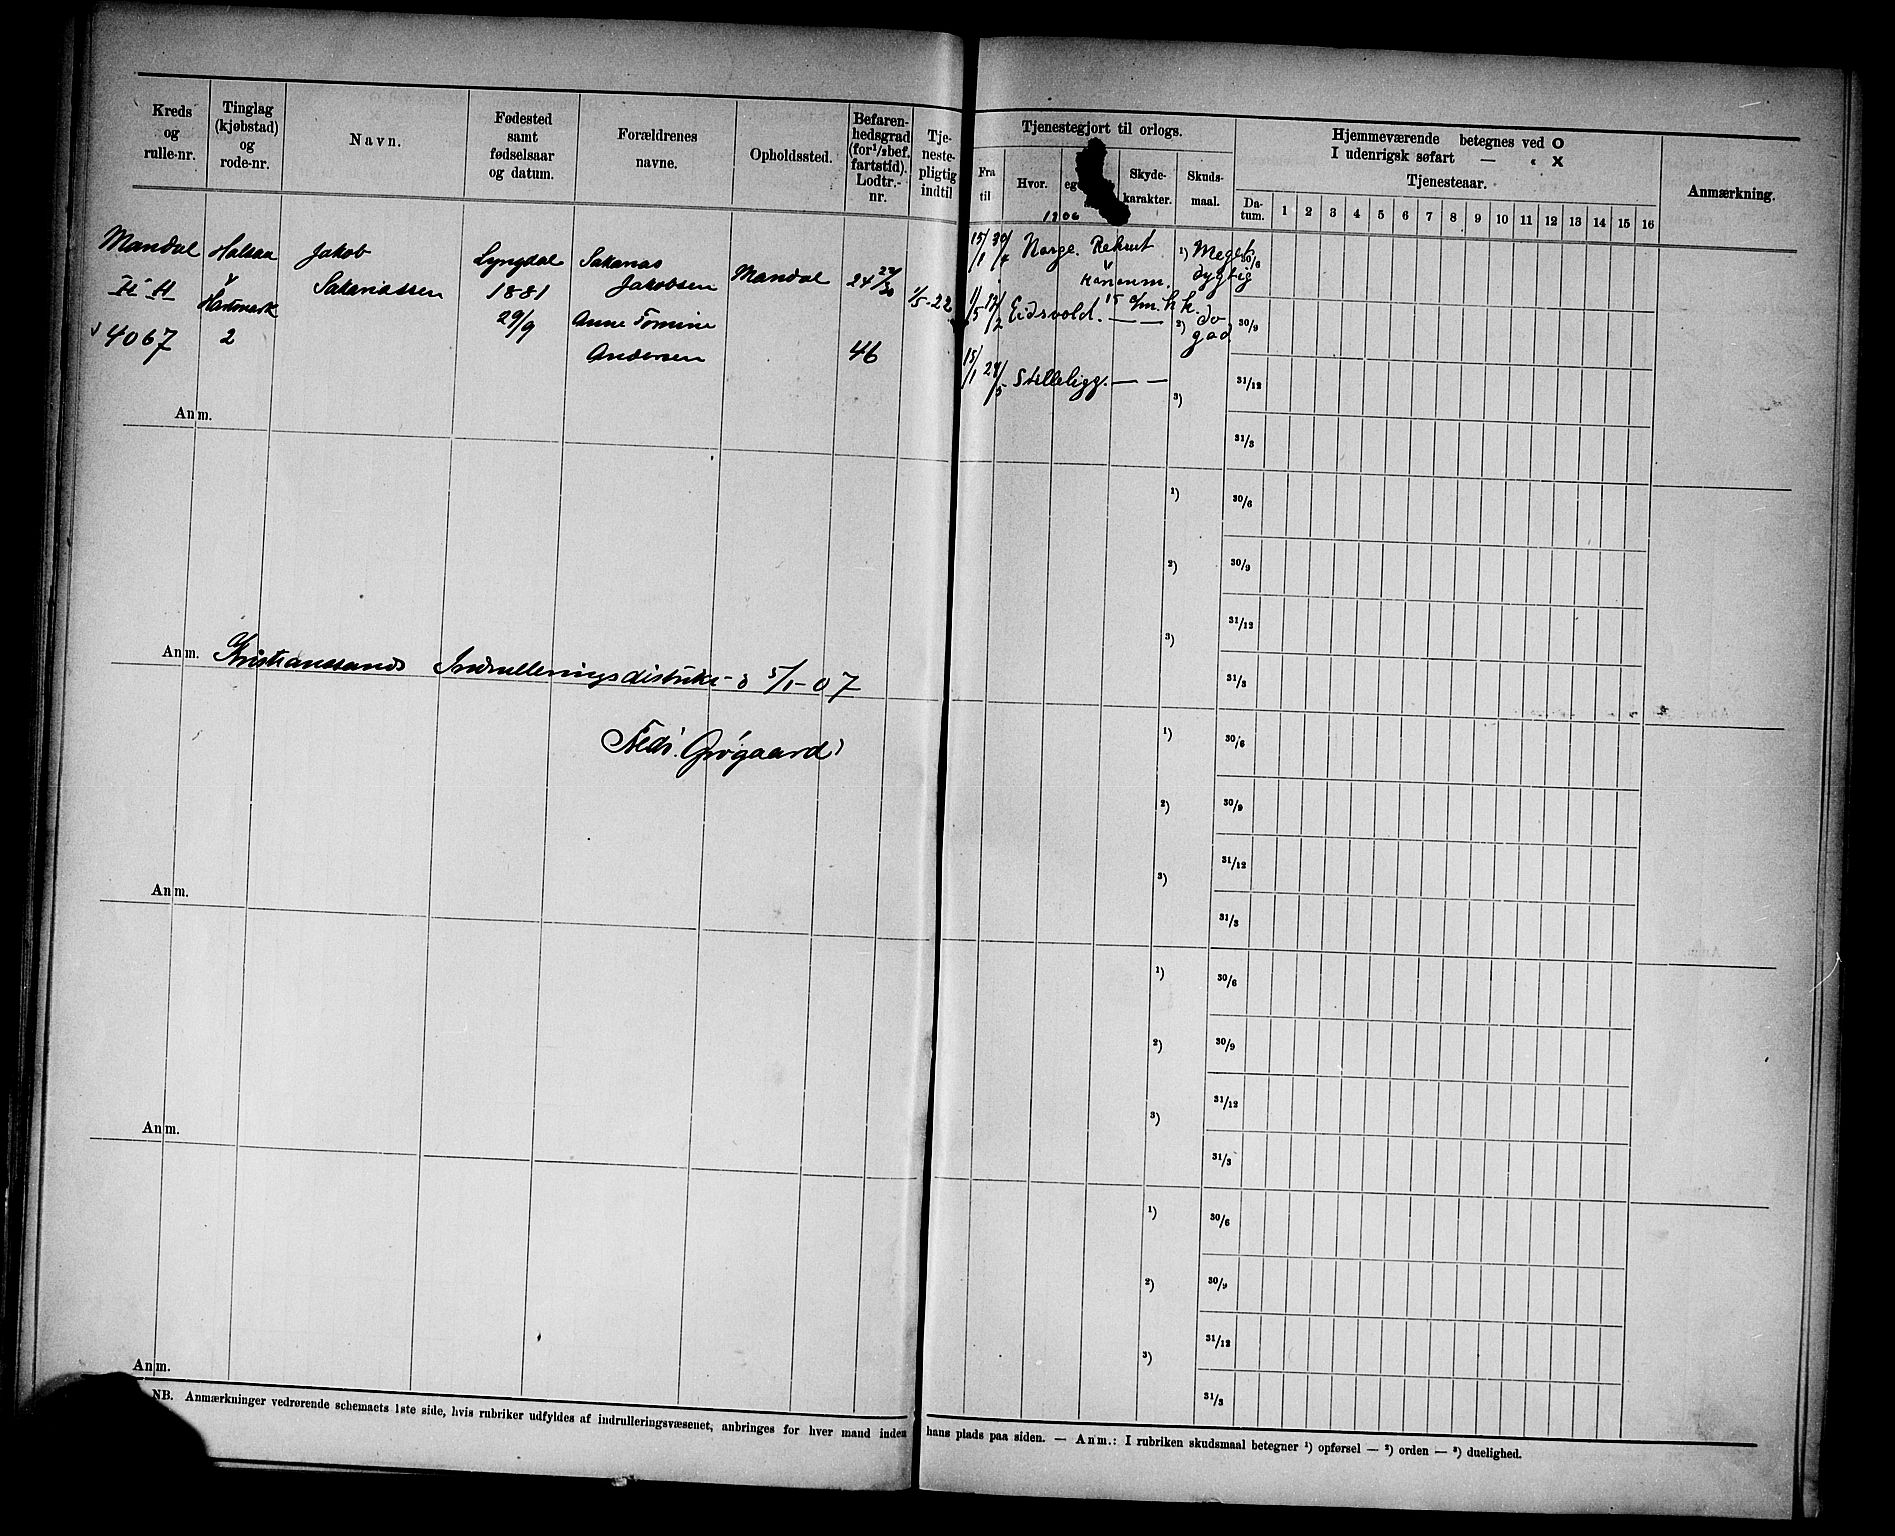 Kreds og rulle-nr.
Tinglag (kjøbstad) og rode-nr.
Navn.
Fødested samt fødselsaar og datum.
Forældrenes navne.
Opholdssted.
Befaren-hedsgrad (for ½ bef. fartstid). Lodtr.-nr.
Tje-neste-pligtig indtil
Tjenestegjort til orlogs.
Fra til
Hvor.
Skyde-karakter.
Skuds-maal.
Hjemmeværende betegnes ved O
I udenrigsk søfart — " X
Tjenesteaar.
Da-tum. 1 2 3 4 5 6 7 8 9 10 11 12 13 14 15 16
Anmærkning.
Mandal
4067
Halsaa
&
Hartmark
2
Jakob
Sakariassen
Lyngdal
1881
29/9
Sakarias
Jakobsen
Anne Tomine
Andersen
Mandal
24 22/30
46
1/5-22
1906
15/1 30/4 Norge. Rekrut
Kanonm.
1) Meget dygtig
Eidsvold. — —
2) do god
15/1 29/5 Stilleligg. — —
3)
30/6
30/9
31/12
31/3
Anm.
1)
2)
3)
30/6
30/9
31/12
31/3
Anm. Kristianssands Indrulleringsdistrikt d 5/1-07
Fredr. Grøgaard
1)
2)
3)
30/6
30/9
31/12
31/3
Anm.
1)
2)
3)
30/6
30/9
31/12
31/3
Anm.
1)
2)
3)
30/6
30/9
31/12
31/3
Anm.
NB. Anmærkninger vedrørende schemaets 1ste side, hvis rubriker udfyldes af indrulleringsvæsenet, anbringes for hver mand inden hans plads paa siden. — Anm.: I rubriken skudsmaal betegner ¹) opførsel — ²) orden — ³) duelighed.